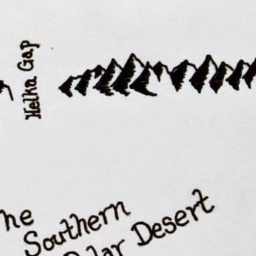 Helka Gap
he
Southern
olar Desert